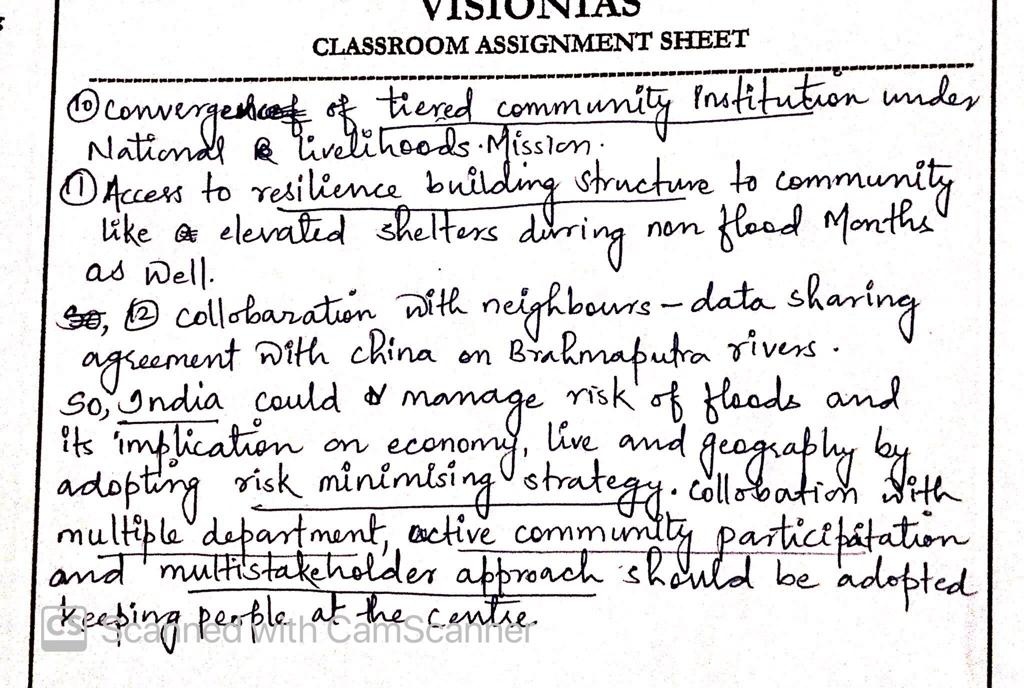 VISIONIAS
CLASSROOM ASSIGNMENT SHEET
⑩ convergence of tiered community Institution under
National livelihoods Mission.
⑪ Access to resilience building structure to community
like elevated shelters during non flood Months
as well.
So, ⑫ collobaration with neighbours - data sharing
agreement with china on Brahmaputra rivers.
So, India could manage risk of floods and
its implication on economy, live and geography by
adopting risk minimising strategy. Collobation with
multiple department, active community participatation
and multistakeholder approach should be adopted
keeping people at the centre.
CS Scanned with CamScanner